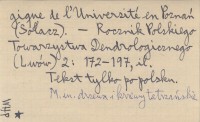 gique de l'Université en Poznań
(Sołacz). — Rocznik Polskiego
Towarzystwa Dendrologicznego
(Lwów) 2: 172-197, il.
Tekst tylko po polsku.
M. in. drzewa i krzewy tatrzańskie
WHP
*